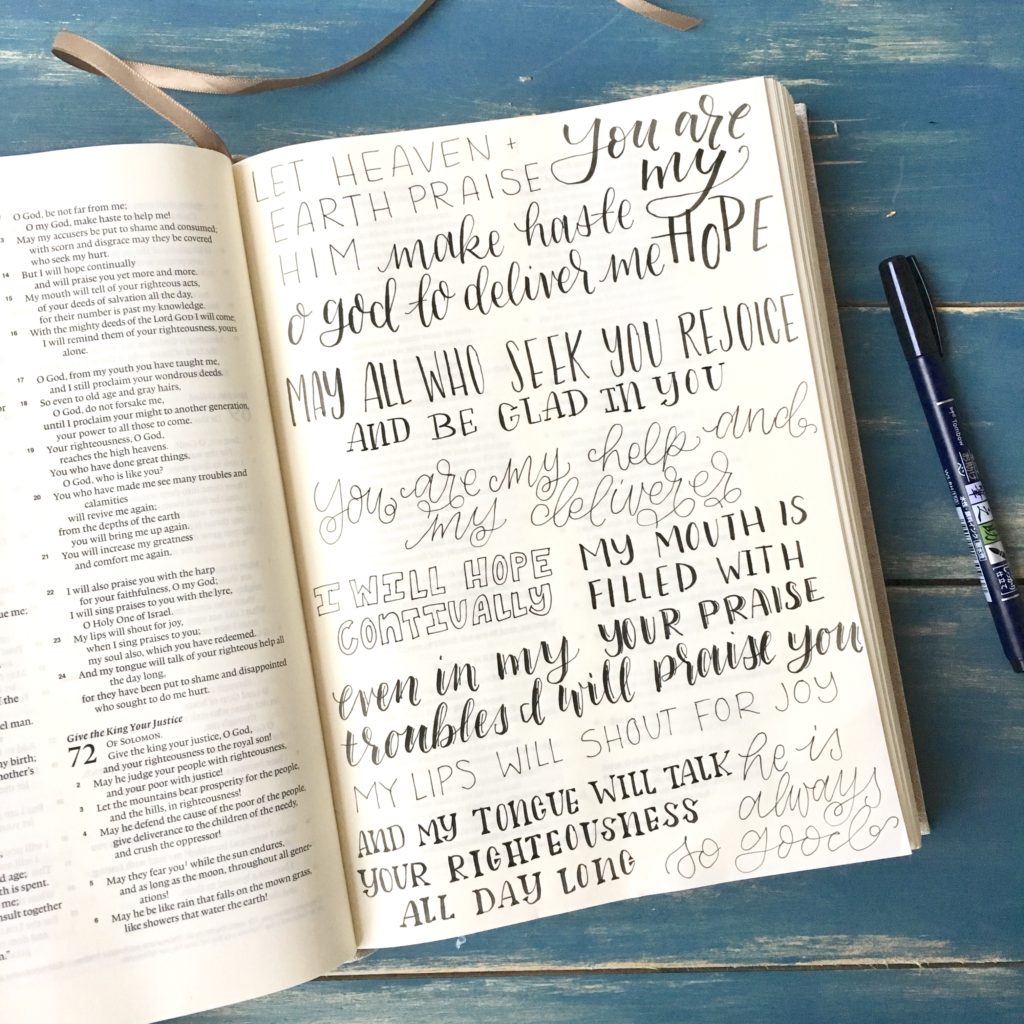 O God, be not far from me;
O my God, make haste to help me!
May my accusers be put to shame and consumed;
with scorn and disgrace may they be covered
who seek my hurt.
14 But I will hope continually
and will praise you yet more and more.
15 My mouth will tell of your righteous acts,
of your deeds of salvation all the day,
for their number is past my knowledge.
16 With the mighty deeds of the Lord GOD I will come;
I will remind them of your righteousness, yours
alone.
17 O God, from my youth you have taught me,
and I still proclaim your wondrous deeds.
18 So even to old age and gray hairs,
O God, do not forsake me,
until I proclaim your might to another generation,
your power to all those to come.
19 Your righteousness, O God,
reaches the high heavens.
You who have done great things,
O God, who is like you?
20 You who have made me see many troubles and
calamities
will revive me again;
from the depths of the earth
you will bring me up again.
21 You will increase my greatness
and comfort me again.
22 I will also praise you with the harp
for your faithfulness, O my God;
I will sing praises to you with the lyre,
O Holy One of Israel.
23 My lips will shout for joy,
when I sing praises to you;
my soul also, which you have redeemed.
24 And my tongue will talk of your righteous help all
the day long,
for they have been put to shame and disappointed
who sought to do me hurt.
Give the King Your Justice
72 OF SOLOMON.
Give the king your justice, O God,
and your righteousness to the royal son!
2 May he judge your people with righteousness,
and your poor with justice!
3 Let the mountains bear prosperity for the people,
and the hills, in righteousness!
4 May he defend the cause of the poor of the people,
give deliverance to the children of the needy,
and crush the oppressor!
5 May they fear you while the sun endures,
and as long as the moon, throughout all gener-
ations!
6 May he be like rain that falls on the mown grass,
like showers that water the earth!
LET HEAVEN +
EARTH PRAISE
HIM
You are
my
HOPE
make haste
o god to deliver me
MAY ALL WHO SEEK YOU REJOICE
AND BE GLAD IN YOU
You are my help and
my deliverer
I WILL HOPE
CONTIUALLY
MY MOUTH IS
FILLED WITH
YOUR PRAISE
even in my
troubles I will praise you
MY LIPS WILL SHOUT FOR JOY
AND MY TONGUE WILL TALK
YOUR RIGHTEOUSNESS
ALL DAY LONG
he is
always
so good